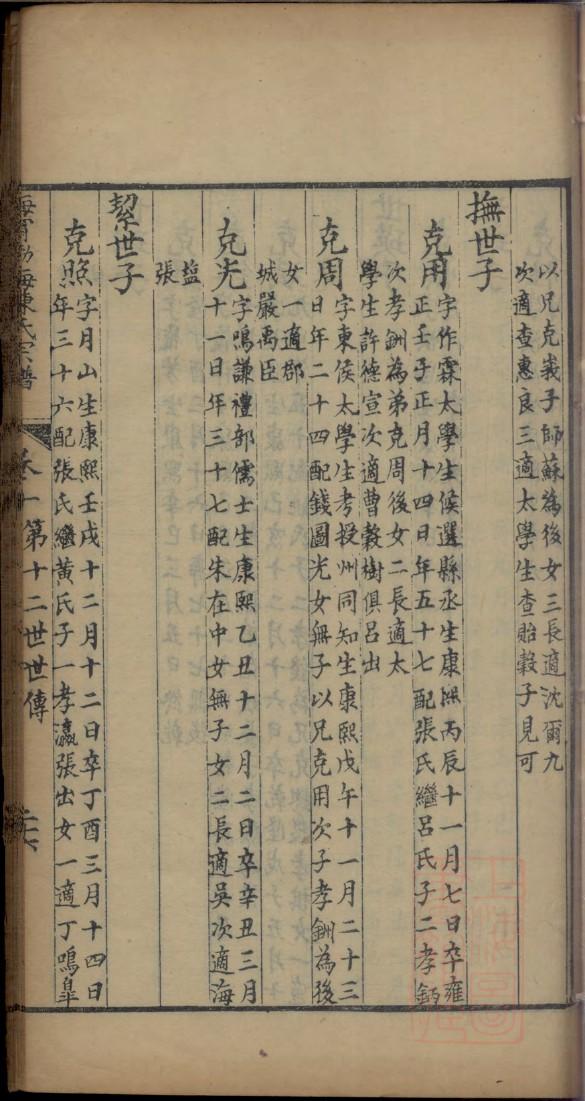 以兄克峩子師蘇為後女三長適沈爾九
次適查惠良三適太學生查貽穀子見可
撫世子
克用
字作霖太學生候選縣丞生康熙丙辰十一月七日卒雍
正壬子正月十四日年五十七配張氏繼呂氏子二孝鈵
次孝鉶為弟克周後女二長適太
學生許德宣次適曹穀樹俱呂出
克周
字東侯太學生考授州同知生康熙戊午十一月二十三
日年二十四配錢圖光女無子以兄克用次子孝鉶為後
女一適郡
城嚴禹臣
克光
字鳴謙禮部儒士生康熙乙丑十二月二日卒辛丑三月
十一日年三十七配朱在中女無子女二長適吳次適海
鹽
張
絜世子
克煕
字月山生康熙壬戌十二月十二日卒丁酉三月十四日
年三十六配張氏繼黃氏子一孝瀛張出女一適丁鳴臯
海寧渤海陳氏宗譜
卷十一 第十二世世傳